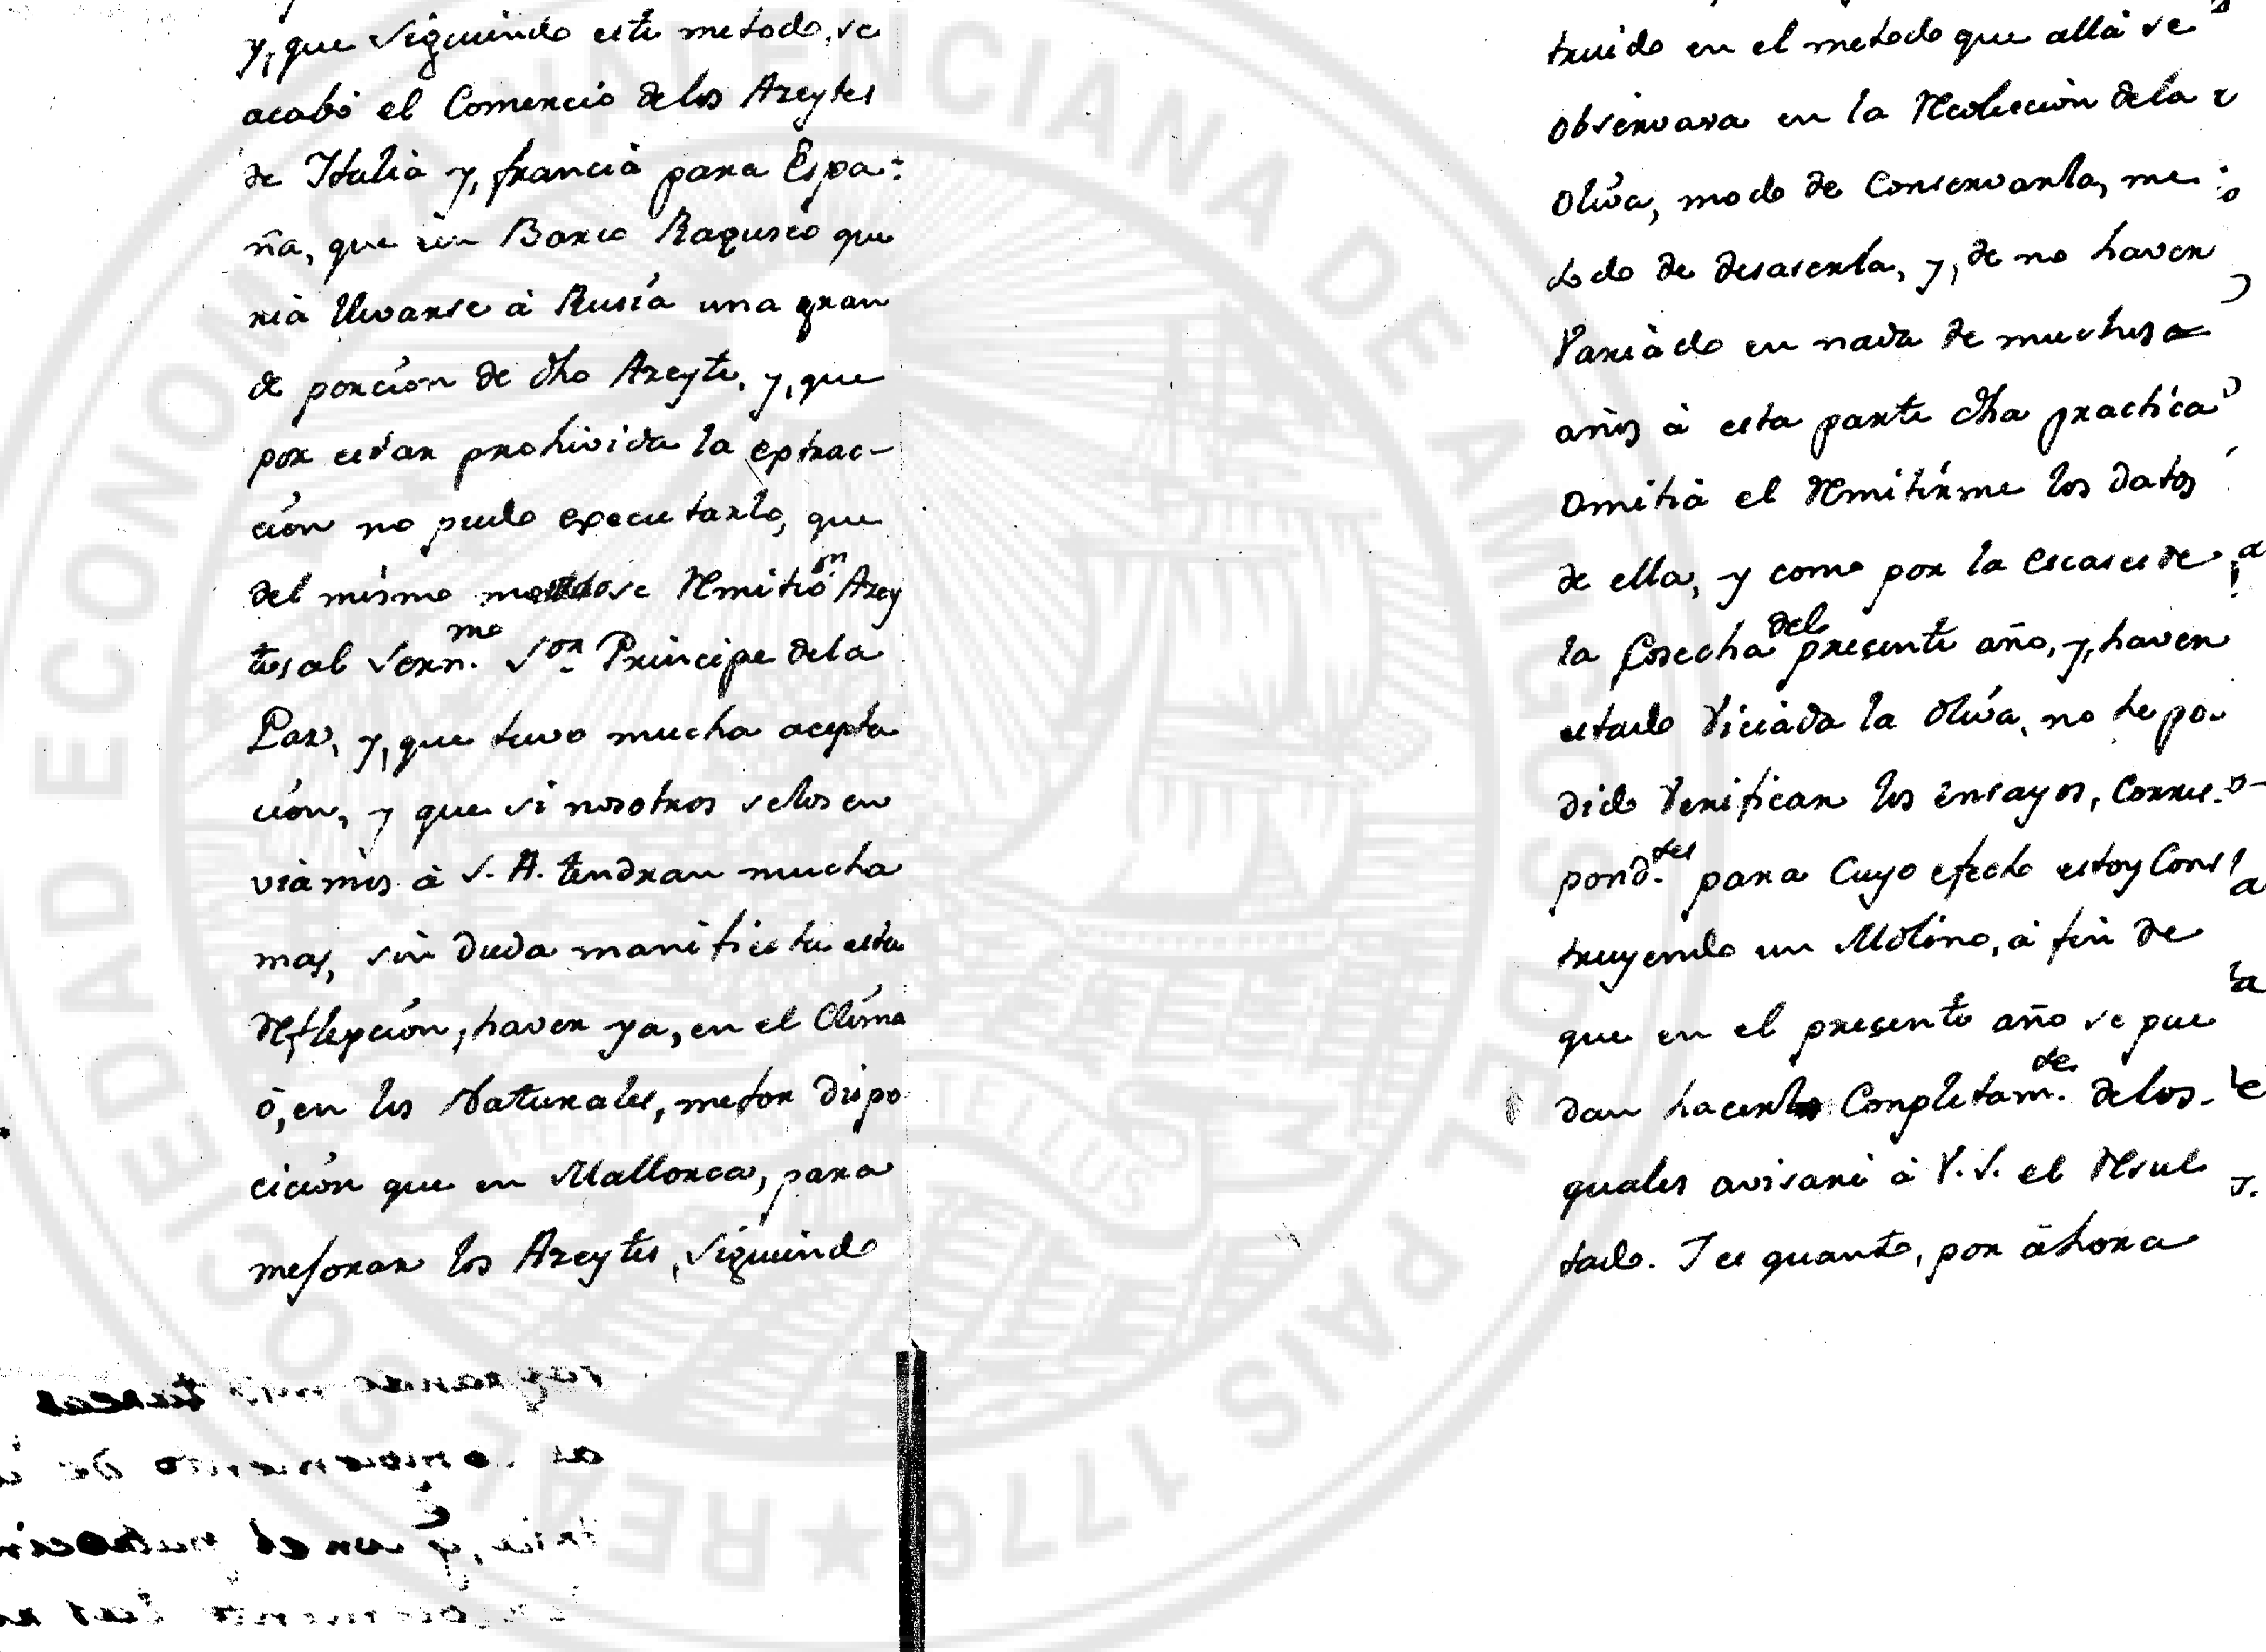 y, que siguiendo este metodo, se
acabó el Comercio delos Azeytes
de Italia y, francia para Espa-
ña, que un Barco Raguseo que
ria llevarse à Rusia una gran
de porcion de dho Azeyte, y, que
por estar prohivida la extrac-
cion no pudo executarlo, que
del mismo se Remitió Azey
tes al Sermo. Sor. Principe dela
Paz, y, que tuvo mucha acepta
cion, y que si nosotros selos en
viamos à S. A. tendran mucha
mas, sin duda manifiesta esta
Reflexcion, haver ya, en el Clima
ó, en los Naturales, mejor dispo
cicion que en Mallorca, para
mejorar los Azeytes, siguiend
truido en el metodo que allà se
observava en la Recoleccion dela
Oliva, modo de Conservarla, me
todo de desacerla, y, de no haver
Variado en nada de muchos
años à esta parte dha practica
Omitia el Remitirme los datos
de ella, y como por la escases de
la Cosecha del presente año, y, haver
estado Viciada la Oliva, no he po-
dido Verificar los ensayos, Corres-
pond.tes para Cuyo efecto estoy Cons
truyendo un Molino, à fin de
que en el presente año se pue
dan hacer Completam.te delos-
quales avisaré à V. S. el Resul
tado. I es quanto, por àhora
SOCIEDAD ECONOMICA VALENCIANA DE AMIGOS DEL PAIS 1776 ★ REAL